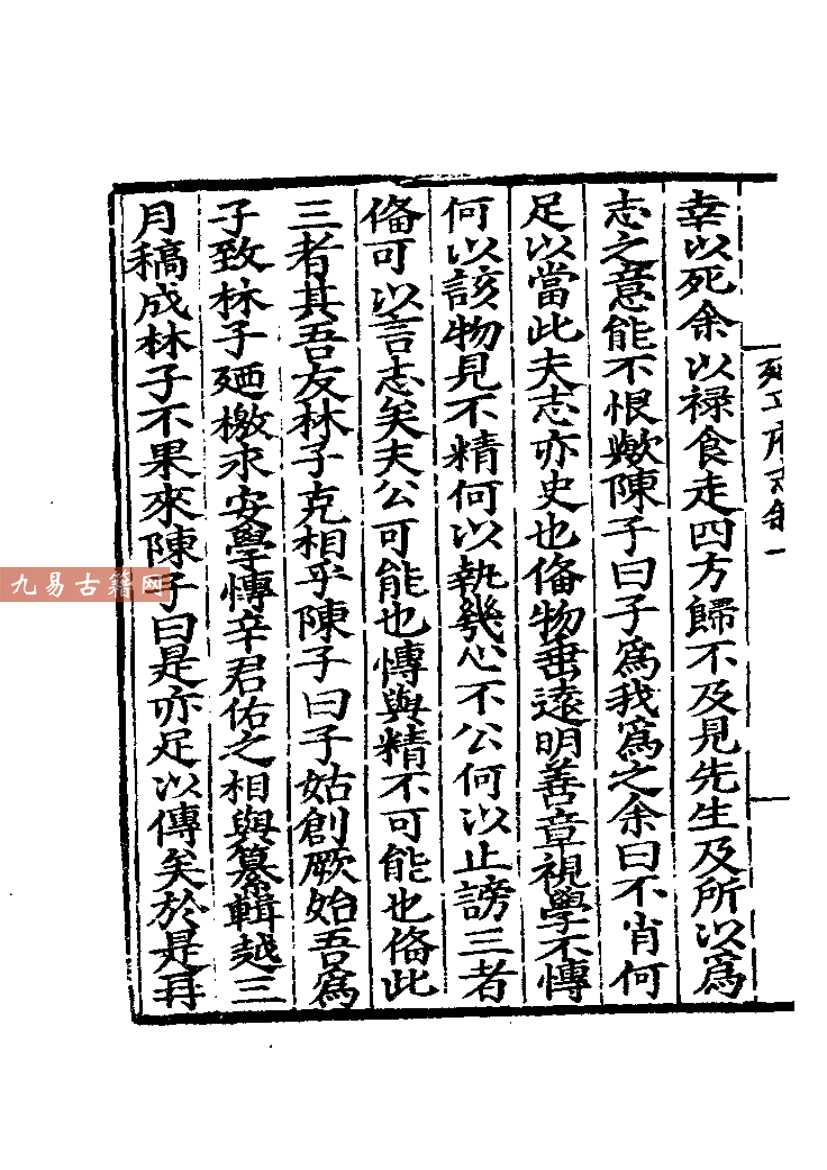 幸以死余以禄食走四方歸不及見先生及所以爲
志之意能不恨歟陳子曰子爲我爲之余曰不肖何
足以當此夫志亦史也俻物垂遠明善章視學不愽
何以該物見不精何以執幾心不公何以止謗三者
俻可以言志矣夫公可能也愽與精不可能也俻此
三者其吾友林子克相乎陳子曰子姑創厥始吾爲
子致林子廼檄求安學愽辛君佑之相與纂輯越三
月稿成林子不果來陳子曰是亦足以傳矣於是再
九易古籍网